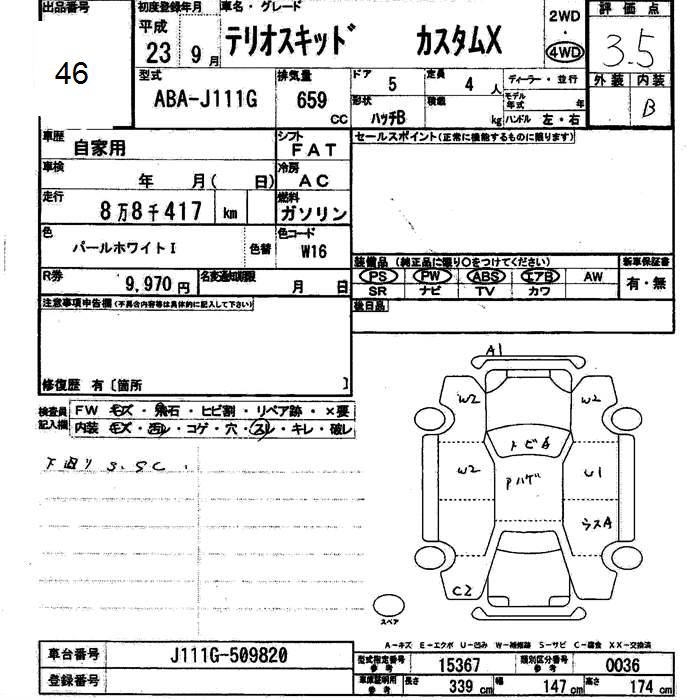 出品番号 初度登録年月 車名・グレード 評価点
46
平成
23 9月 テリオスキッド カスタムX
2WD
・
4WD
3.5
外装 内装
B
型式 排気量 ドア 5 定員 4人 ディーラー・並行
ABA-J111G 659 CC
形状 ハッチB 積載 kg モデル年式 年
ハンドル 左・右
車歴 自家用 シフト FAT
セールスポイント(正常に機能するものに限ります)
車検 年 月( 日) 冷房 AC
走行 8万8千417 km 燃料 ガソリン
色 パールホワイトI 色替 色コード W16
装備品(純正品に限り○をつけてください) 新車保証書
PS PW ABS エアB AW 有・無
SR ナビ TV カワ
R券 9,970円 名変通知期限 月 日
注意事項申告欄(不具合内容等は具体的に記入して下さい)
後日品
修復歴 有〔箇所 〕
検査員記入欄 FW キズ・飛石・ヒビ割・リペア跡・×要
内装 キズ・汚レ・コゲ・穴・スレ・キレ・破レ
下回り S.SC.
A1
W2 W2
トビA
W2 Pハゲ U1
ラスA
C2
スペア
A-キズ E-エクボ U-凹み W-補修跡 S-サビ C-腐食 XX-交換済
車台番号 J111G-509820
登録番号
型式指定番号参考 15367 類別区分番号参考 0036
車庫証明用参考 長さ 339cm 幅 147cm 高さ 174cm